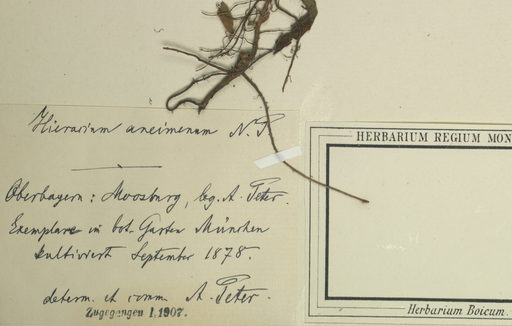 Hieracium aneimenum N. P.
HERBARIUM REGIUM MON
Oberbayern: Moosburg, leg. A. Peter.
Exemplare im bot. Garten München
kultiviert September 1878.
determ. et comm. A. Peter.
Zugegangen I, 1907.
Herbarium Boicum.